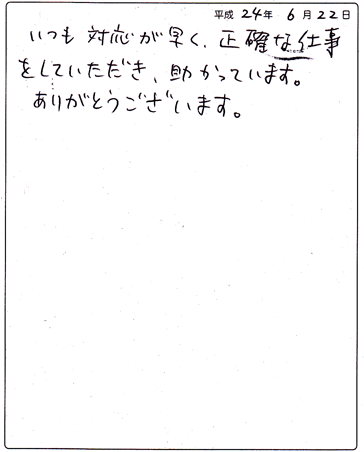 平成 24年 6月 22日
いつも 対応が早く、正確な仕事
をしていただき、助かっています。
ありがとうございます。